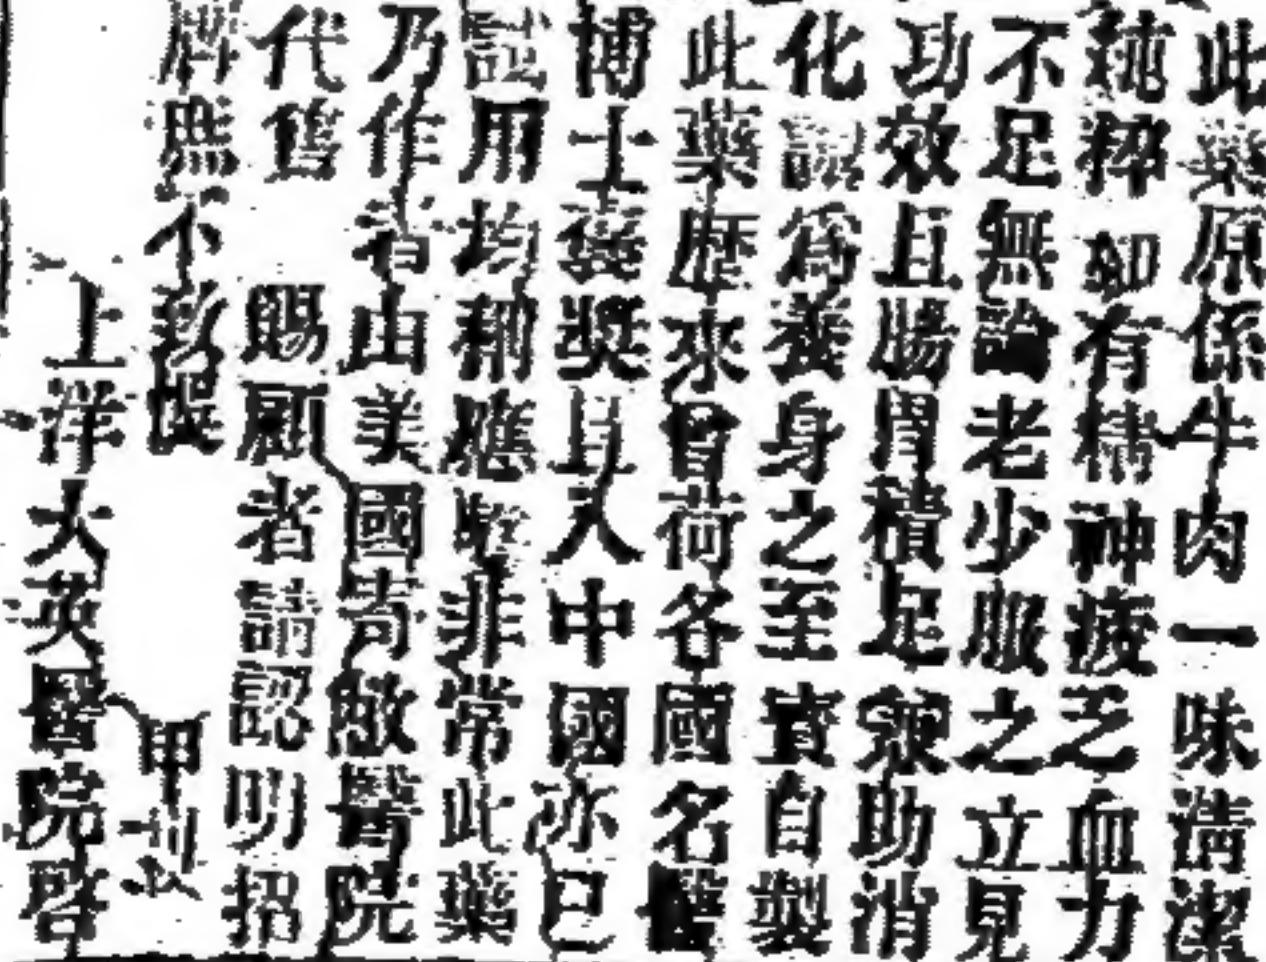 此藥原係牛肉一味淸潔
純粹如有精神疲乏血力
不足無論老少服之立見
功效且腸胃積足兼助消
化誠爲養身之至寳自製
此藥歷來曾荷各國名醫
博士褒奬具入中國亦已
試用均稱應騐非常此藥
乃作者由美國啇敝醫院
代售 賜顧者請認明招
牌庶不致悞 甲
上洋大英醫院啓